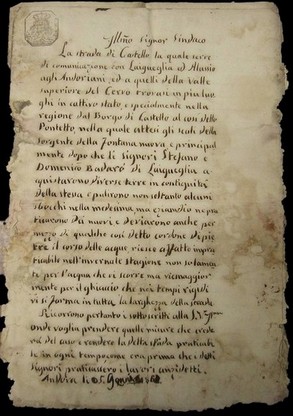 Ill.mo Signor Sindaco
La strada di Castello la quale serve
di comunicazione con Laigueglia ed Alassio
agli Andoriani, ed a quelli della valle
superiore del Cervo trovasi in più luo
ghi in cattivo stato, e specialmente nella
regione dal Borgo di Castello al così detto
Pontetto, nella quale atteso gli scoli della
sorgente della Fontana nuova e principal
mente dopo che li Signori Stefano e
Domenico Badarò di Laigueglia a
quistarono diverse terre in contiguità
della stessa e aprirono non soltanto alcuni
sbocchi nella medesima, ma
dei muri e deviarono anche per
mezzo di qualche così detto cordone di pie
tre il corso delle acque riesce affatto impra
ticabile nell'invernale stagione non soltan
te per l'acqua che vi scorre ma viemaggior
mente per il ghiaccio che nei tempi rigidi
vi si forma in tutta la larghezza della strada.
Ricorrono pertanto i sottoscritti alla S.V. Ill.ma
onde voglia prendere quelle misure che crede
rà del caso e rendere la detta strada pratica
le in ogni tempo come era prima che i detti
Signori praticassero i lavori anzidetti.
Andora li